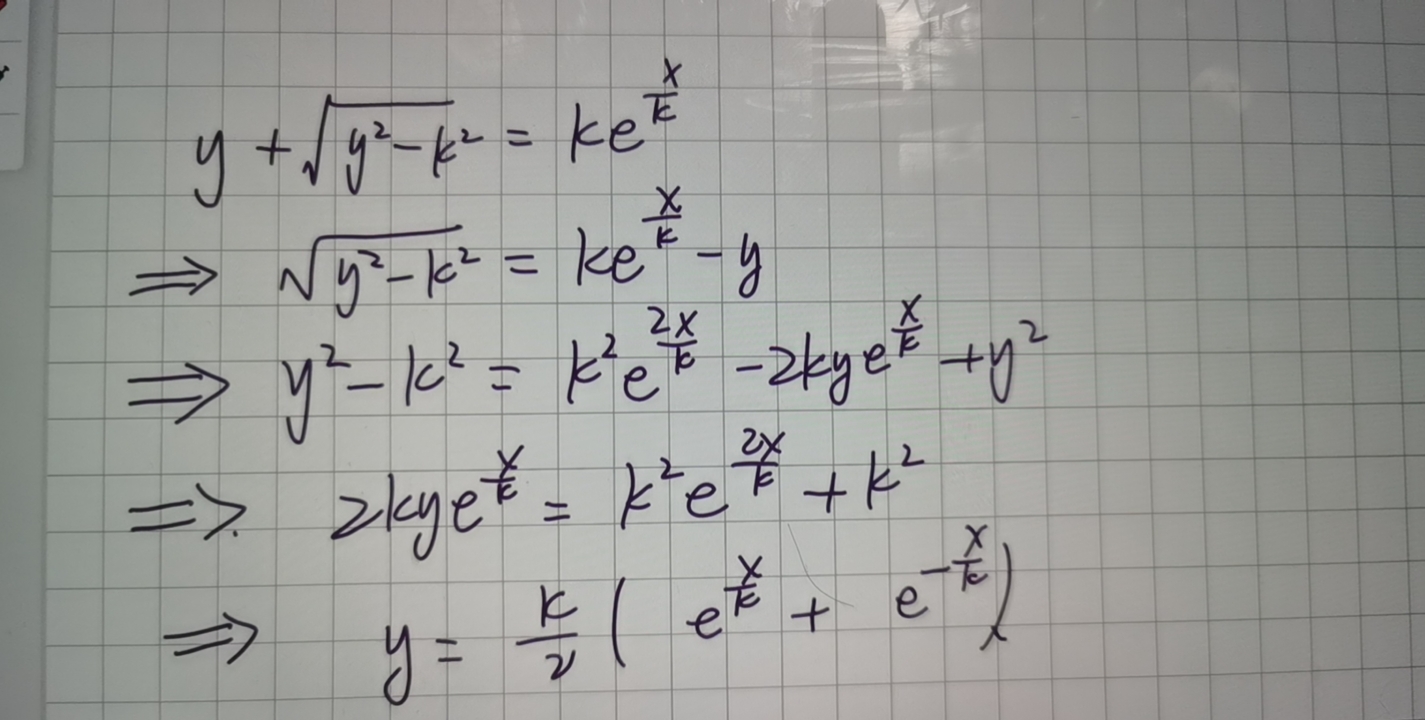 y + √(y² − k²) = ke^(x/k)
⇒ √(y² − k²) = ke^(x/k) − y
⇒ y² − k² = k²e^(2x/k) − 2kye^(x/k) + y²
⇒. 2kye^(x/k) = k²e^(2x/k) + k²
⇒ y = k/2 (e^(x/k) + e^(−x/k))